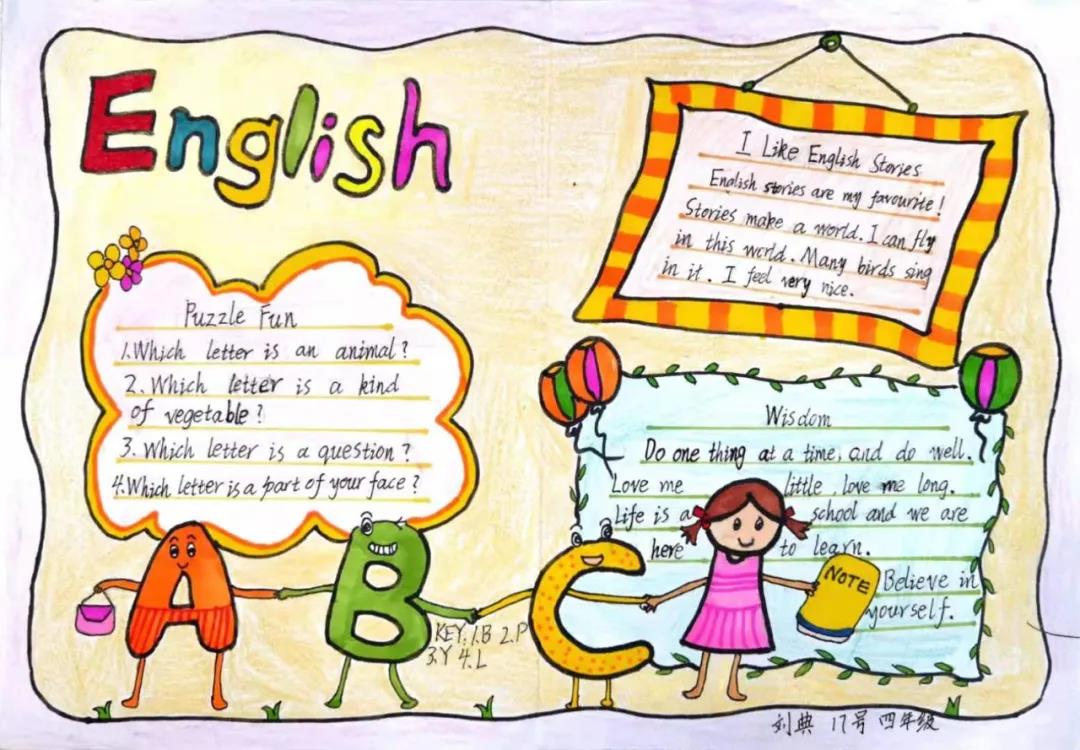 English
I Like English Stories
English stories are my favourite!
Stories make a world. I can fly
in this world. Many birds sing
in it. I feel very nice.
Puzzle Fun
1. Which letter is an animal?
2. Which letter is a kind
of vegetable?
3. Which letter is a question?
4. Which letter is a part of your face?
KEY: 1.B 2.P
3.Y 4.L
Wisdom
Do one thing at a time, and do well.
Love me little love me long.
Life is a school and we are
here to learn.
Believe in
yourself.
NOTE
A B C
刘典 17号 四年级